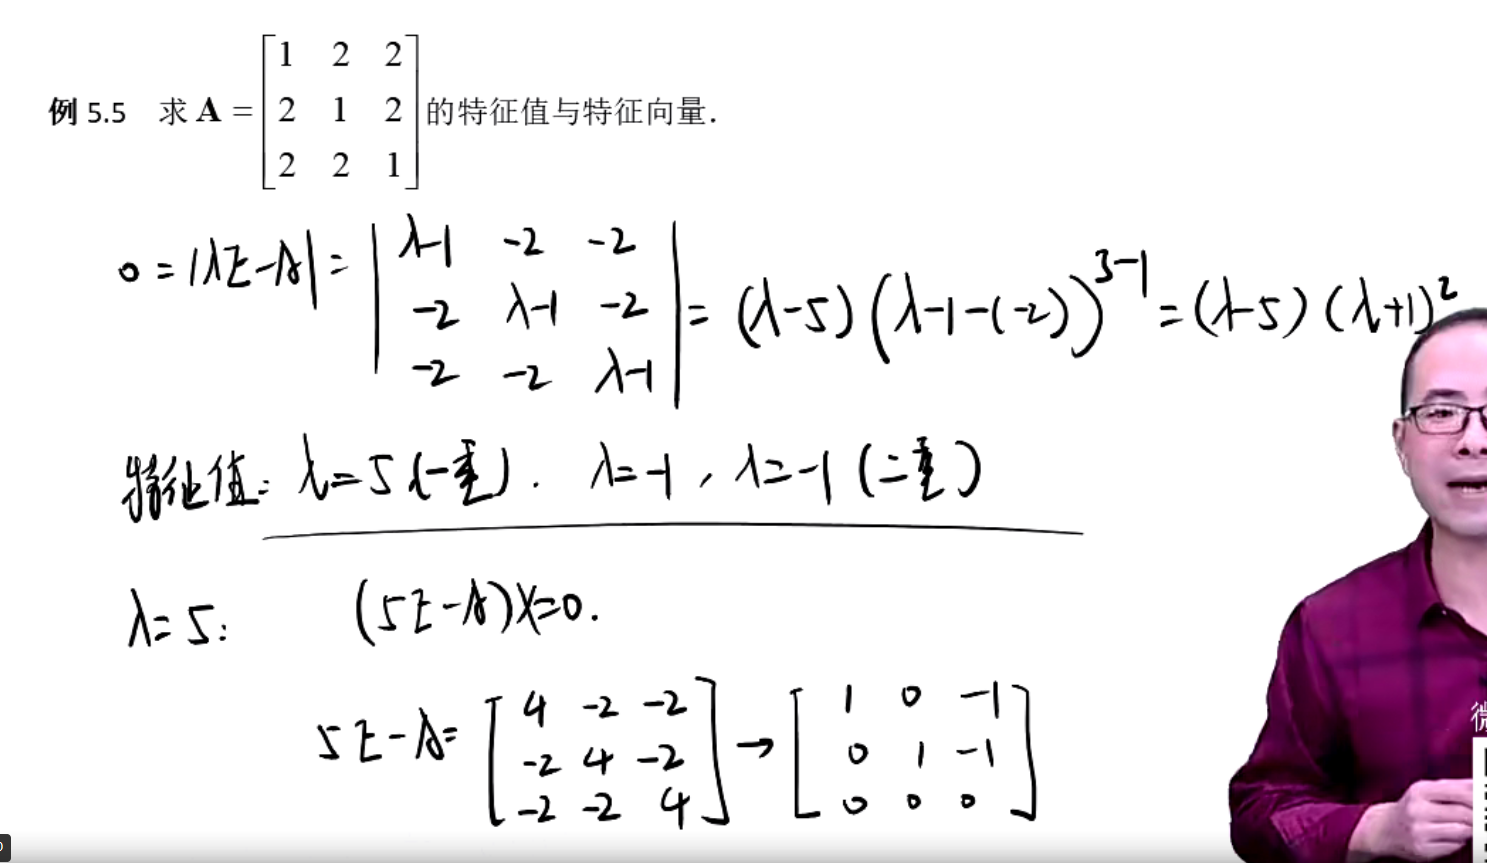 例 5.5 求 A = [1 2 2; 2 1 2; 2 2 1] 的特征值与特征向量.
0 = |λE-A| = |λ-1 -2 -2; -2 λ-1 -2; -2 -2 λ-1| = (λ-5)(λ-1-(-2))^{3-1} = (λ-5)(λ+1)^2
特征值: λ=5(一重). λ=-1, λ=-1(二重)
λ=5: (5E-A)X=0.
5E-A= [4 -2 -2; -2 4 -2; -2 -2 4] → [1 0 -1; 0 1 -1; 0 0 0]